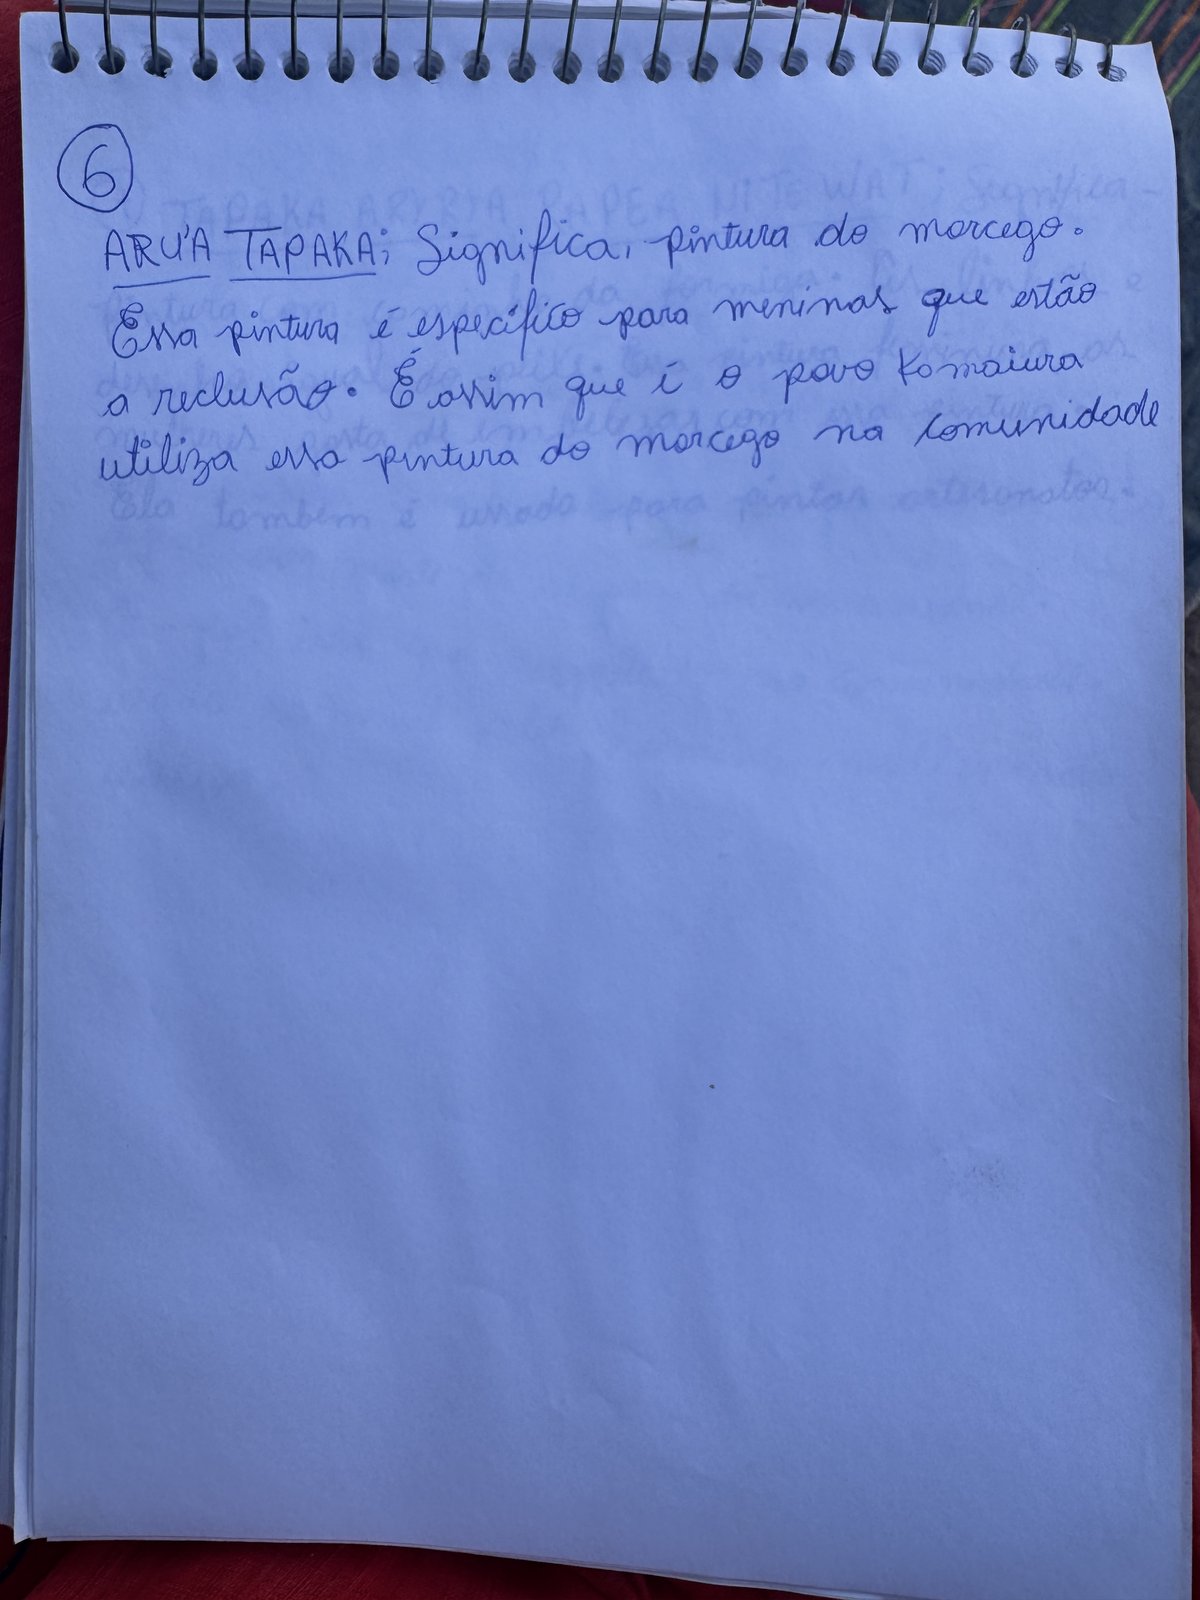 6
ARU'A TAPAKA; Significa, pintura do morcego.
Essa pintura é específico para meninas que estão
a reclusão. É assim que é o povo Kamaiura
utiliza essa pintura do morcego na comunidade
Ela também é usada para pintar artesanatos.